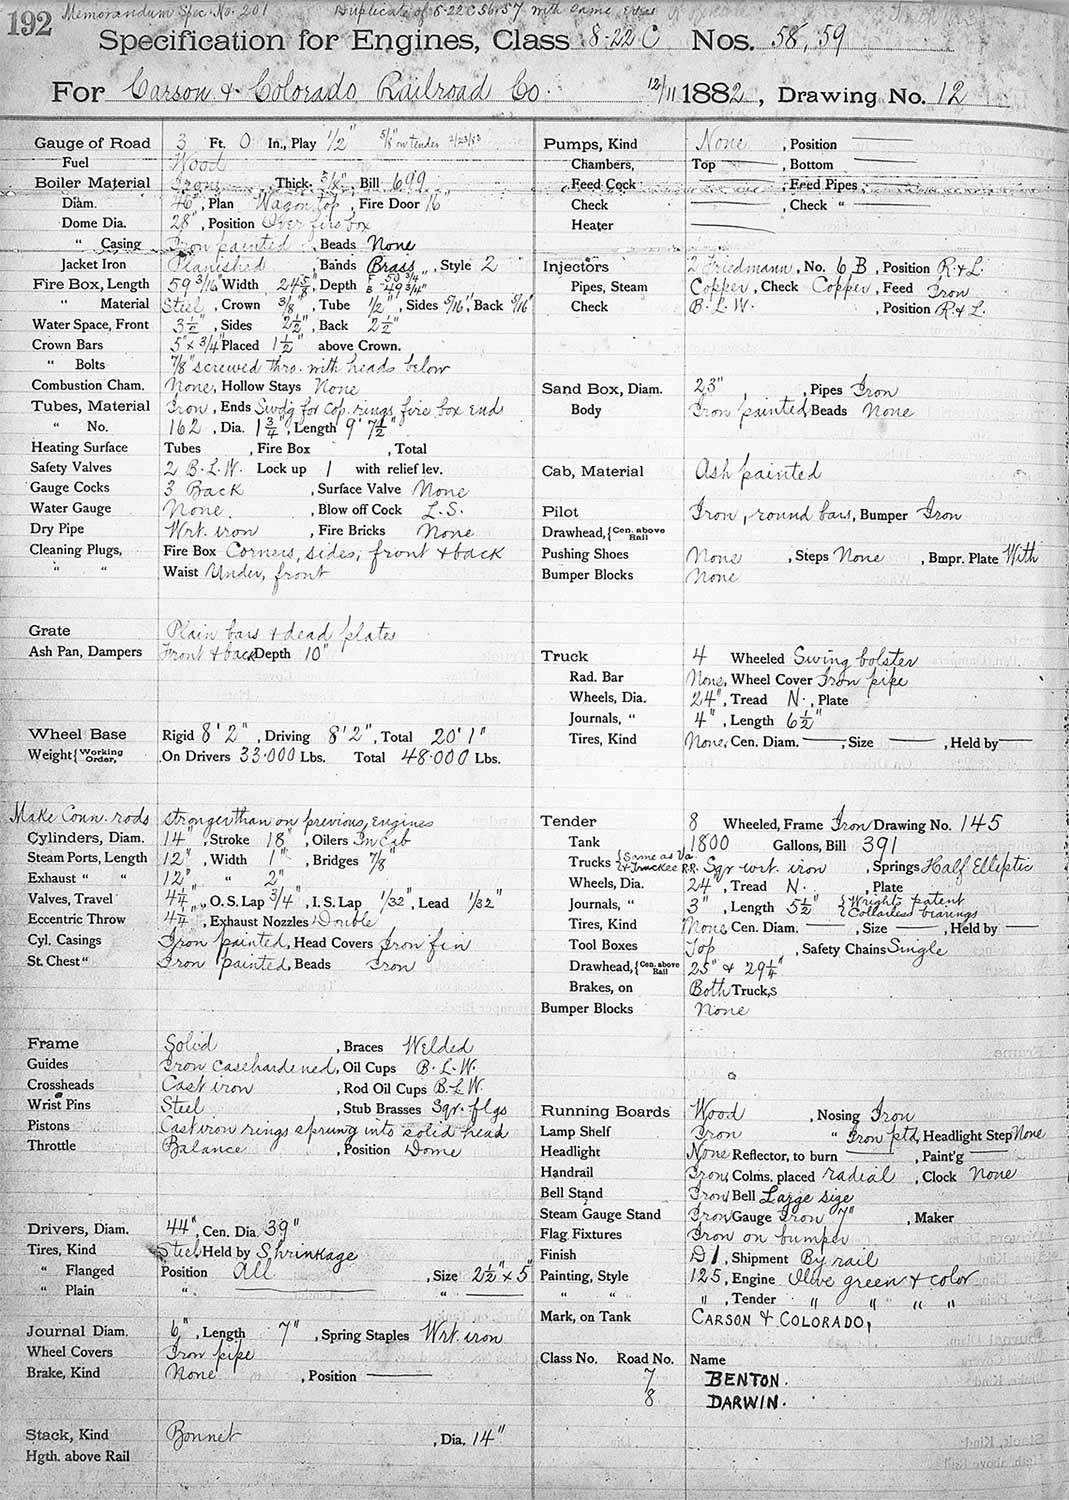 192 Memorandum Spec. No. 201 Duplicate of 8-22 C 56 & 57 with same
Specification for Engines, Class 8-22 C Nos. 58, 59
For Carson & Colorado Railroad Co. 12/11 1882, Drawing No. 12
Gauge of Road 3 Ft. 0 In., Play 1/2" 5/8" on tender
Fuel Wood
Boiler Material Iron, Thick. 3/8", Bill 699
Diam. 46", Plan Wagon top, Fire Door 16"
Dome Dia. 28", Position Over fire box
" Casing Iron painted, Beads None
Jacket Iron Planished, Bands Brass, Style 2
Fire Box, Length 59 3/16" Width 24 5/8", Depth F 50 3/4" B 49 3/4"
" Material Steel, Crown 3/8", Tube 1/2", Sides 5/16", Back 5/16"
Water Space, Front 3 1/2", Sides 2 1/2", Back 2 1/2"
Crown Bars 5" x 3/4" Placed 1 1/2" above Crown.
" Bolts 7/8" screwed thro. with heads below
Combustion Cham. None, Hollow Stays None
Tubes, Material Iron, Ends Swdg for Cop. rings, fire box end
" No. 162, Dia. 1 3/4", Length 9' 7 1/2"
Heating Surface Tubes , Fire Box , Total
Safety Valves 2 B.L.W. Lock up 1 with relief lev.
Gauge Cocks 3 Back, Surface Valve None
Water Gauge None, Blow off Cock L.S.
Dry Pipe Wrt. iron, Fire Bricks None
Cleaning Plugs, Fire Box Corners, sides, front & back
" " Waist Under, front
Grate Plain bars & dead plates
Ash Pan, Dampers Front & back Depth 10"
Wheel Base Rigid 8' 2", Driving 8' 2", Total 20' 1"
Weight {Working Order, On Drivers 33·000 Lbs. Total 48·000 Lbs.
Make Conn. rods stronger than on previous, engines
Cylinders, Diam. 14", Stroke 18", Oilers In cab
Steam Ports, Length 12", Width 1", Bridges 7/8"
Exhaust " " 12" " 2"
Valves, Travel 4 1/4", O. S. Lap 3/4", I. S. Lap 1/32", Lead 1/32"
Eccentric Throw 4 1/4", Exhaust Nozzles Double
Cyl. Casings Iron painted, Head Covers Iron fin
St. Chest " Iron painted, Beads Iron
Frame Solid, Braces Welded
Guides Iron casehardened, Oil Cups B.L.W.
Crossheads Cast iron, Rod Oil Cups B.L.W.
Wrist Pins Steel, Stub Brasses Sqr. flgs
Pistons Cast iron rings sprung into solid head
Throttle Balance, Position Dome
Drivers, Diam. 44", Cen. Dia. 39"
Tires, Kind Steel Held by Shrinkage
" Flanged Position All, Size 2 1/2" x 5"
" Plain " — " —
Journal Diam. 6", Length 7", Spring Staples Wrt. iron
Wheel Covers Iron pipe
Brake, Kind None, Position —
Stack, Kind Bonnet, Dia. 14"
Hgth. above Rail
Pumps, Kind None, Position —
Chambers, Top — , Bottom —
Feed Cock — , Feed Pipes —
Check — , Check " —
Heater —
Injectors 2 Friedmann, No. 6 B, Position R. & L.
Pipes, Steam Copper, Check Copper, Feed Iron
Check B.L.W. , Position R. & L.
Sand Box, Diam. 23", Pipes Iron
Body Iron painted, Beads None
Cab, Material Ash painted
Pilot Iron, round bars, Bumper Iron
Drawhead, {Cen. above Rail
Pushing Shoes None, Steps None, Bmpr. Plate With
Bumper Blocks None
Truck 4 Wheeled Swing bolster
Rad. Bar None, Wheel Cover Iron pipe
Wheels, Dia. 24", Tread N., Plate
Journals, " 4", Length 6 1/2"
Tires, Kind None, Cen. Diam. —, Size —, Held by —
Tender 8 Wheeled, Frame Iron Drawing No. 145
Tank 1800 Gallons, Bill 391
Trucks {Same as Va. & Truckee R.R. Sqr wrt. iron, Springs Half Elliptic
Wheels, Dia. 24", Tread N., Plate
Journals, " 3", Length 5 1/2" {Wright's patent Collarless bearings
Tires, Kind None, Cen. Diam. —, Size —, Held by —
Tool Boxes Top, Safety Chains Single
Drawhead, {Cen. above Rail 25" & 29 1/4"
Brakes, on Both Truck,s
Bumper Blocks None
Running Boards Wood, Nosing Iron
Lamp Shelf Iron " Iron ptd, Headlight Step None
Headlight None Reflector, to burn —, Paint'g —
Handrail Iron, Colms. placed radial, Clock None
Bell Stand Iron, Bell Large size
Steam Gauge Stand Iron Gauge Iron 7", Maker
Flag Fixtures Iron on bumper
Finish D 1, Shipment By rail
Painting, Style 125, Engine Olive green & color
" " ", Tender " " " "
Mark, on Tank CARSON & COLORADO,
Class No. Road No. Name
7 BENTON.
8 DARWIN.